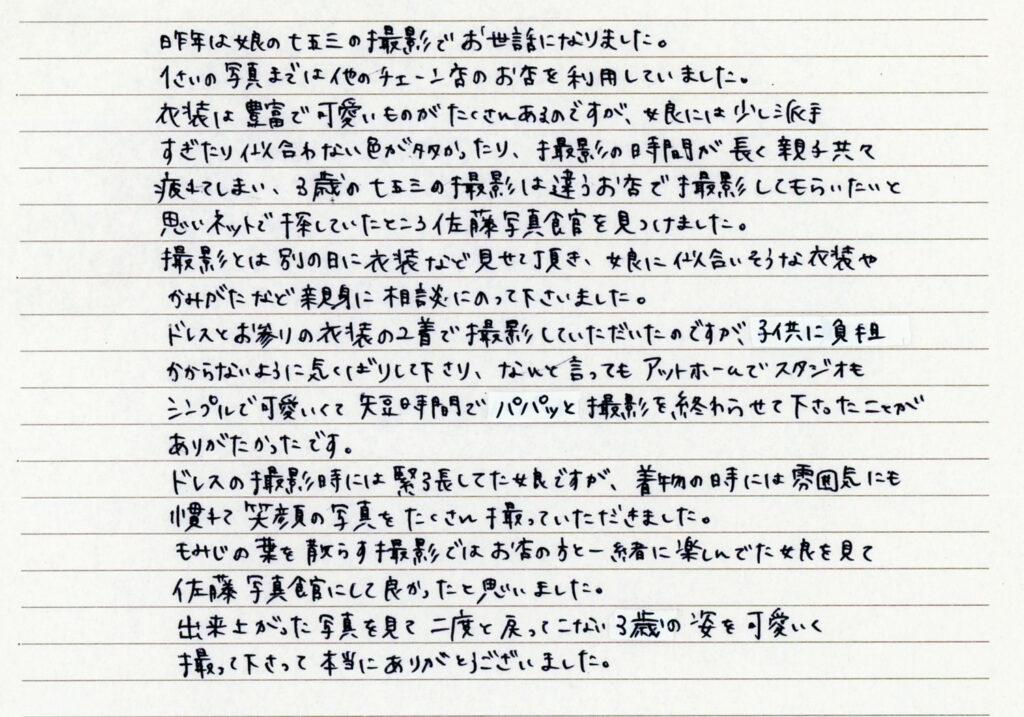 昨年は娘の七五三の撮影でお世話になりました。
1さいの写真までは他のチェーン店のお店を利用していました。
衣装は豊富で可愛いものがたくさんあるのですが、娘には少し派手
すぎたり似合わない色が多かったり、撮影の時間が長く親子共々
疲れてしまい、3歳の七五三の撮影は違うお店で撮影してもらいたいと
思いネットで探していたところ佐藤写真館を見つけました。
撮影とは別の日に衣装など見せて頂き、娘に似合いそうな衣装や
かみがたなど親身に相談にのって下さいました。
ドレスとお参りの衣装の2着で撮影していただいたのですが、子供に負担
かからないように気くばりして下さり、なんと言ってもアットホームでスタジオも
シンプルで可愛いくて短時間でパパッと撮影を終わらせて下さったことが
ありがたかったです。
ドレスの撮影時には緊張してた娘ですが、着物の時には雰囲気にも
慣れて笑顔の写真をたくさん撮っていただきました。
もみじの葉を散らす撮影ではお店の方と一緒に楽しんでた娘を見て
佐藤写真館にして良かったと思いました。
出来上がった写真を見て二度と戻ってこない3歳の姿を可愛いく
撮って下さって本当にありがとうございました。